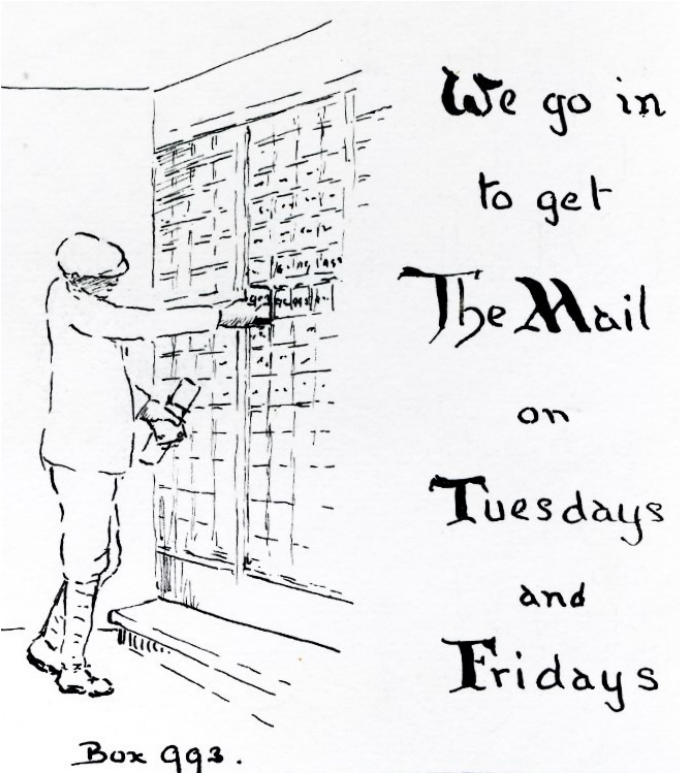 We go in
to get
The Mail
on
Tuesdays
and
Fridays
Box 993.